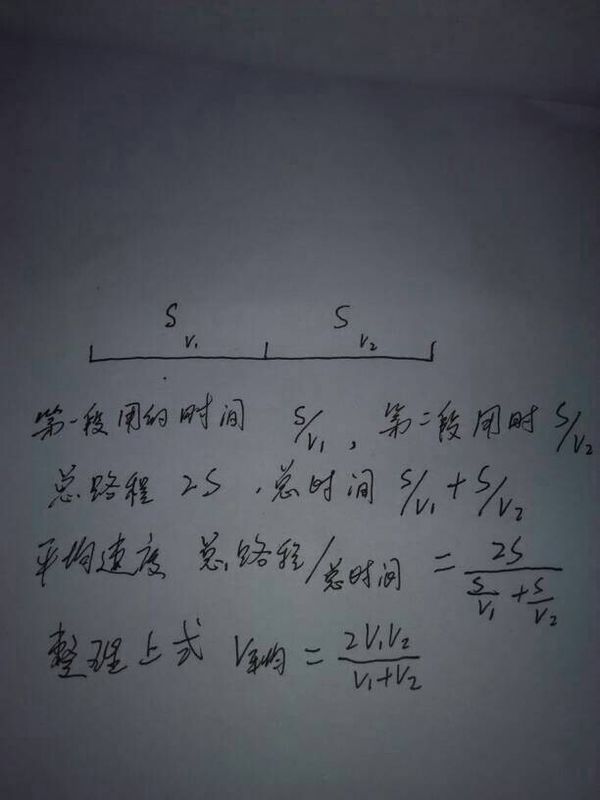 S S
V₁ V₂
第一段用的时间 S/V₁, 第二段用时 S/V₂
总路程 2S, 总时间 S/V₁+S/V₂
平均速度 总路程/总时间 = 2S/(S/V₁+S/V₂)
整理上式 V平均 = 2V₁V₂/(V₁+V₂)